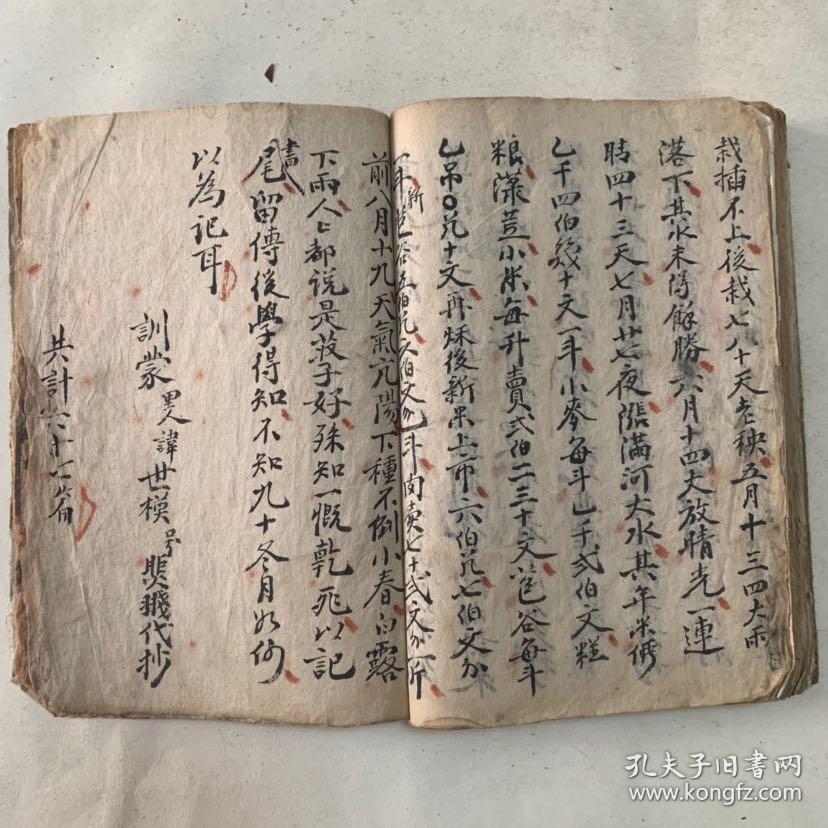 栽插不上後栽七八十天老秧五月十三四大雨
落下其水未得餘勝六月十四丈放晴光一連
晴四十三天七月廿七夜漲滿河大水其年米價
乙千四伯幾十文一斗小麥每斗乙千弍伯文糕
粮漾荳小米每升賣弍伯二三十文芭谷每斗
乙吊〇 十文再秌後新米上市六伯 七伯文
一斗新芭谷五伯 六伯文 斗肉賣七十弍文 一斤
前八月十九天氣亢陽下種不倒小春白露
下雨人人都說是莊子好殊知一慨乾死以記
書尾留傳後學得知不知九十冬月如何
以為記耳
訓蒙 諱世模号 代抄
共計六十七篇
孔夫子旧書网
www.kongfz.com